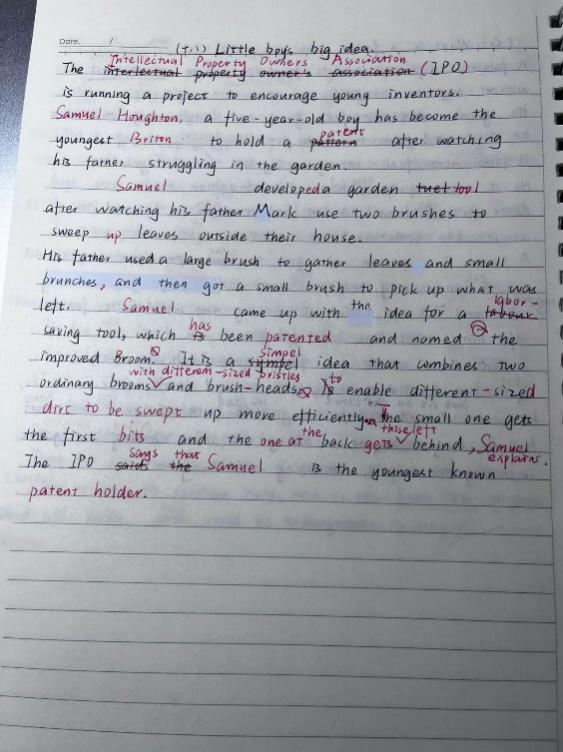 Date. /
(十八) Little boy's big idea.
Intellectual Property Owners Association
The interlectual property owner's association (IPO)
is running a project to encourage young inventors.
Samuel Houghton, a five-year-old boy has become the
patent
youngest Briton to hold a pattern after watching
his father struggling in the garden.
Samuel developed a garden tuet tool
after watching his father Mark use two brushes to
sweep up leaves outside their house.
His father used a large brush to gather leaves and small
brunches, and then got a small brush to pick up what was
labor-
left. Samuel came up with the idea for a labour
has
saving tool, which is been patented and named the
simpel
improved Broom. It is a sympel idea that combines two
with different-sized bristles
ordinary brooms and brush-heads to enable different-sized
dirt to be swept up more efficiently. The small one gets
the those left
the first bits and the one at back gets behind, Samuel
explains.
says that
The IPO saids the Samuel is the youngest known
patent holder.